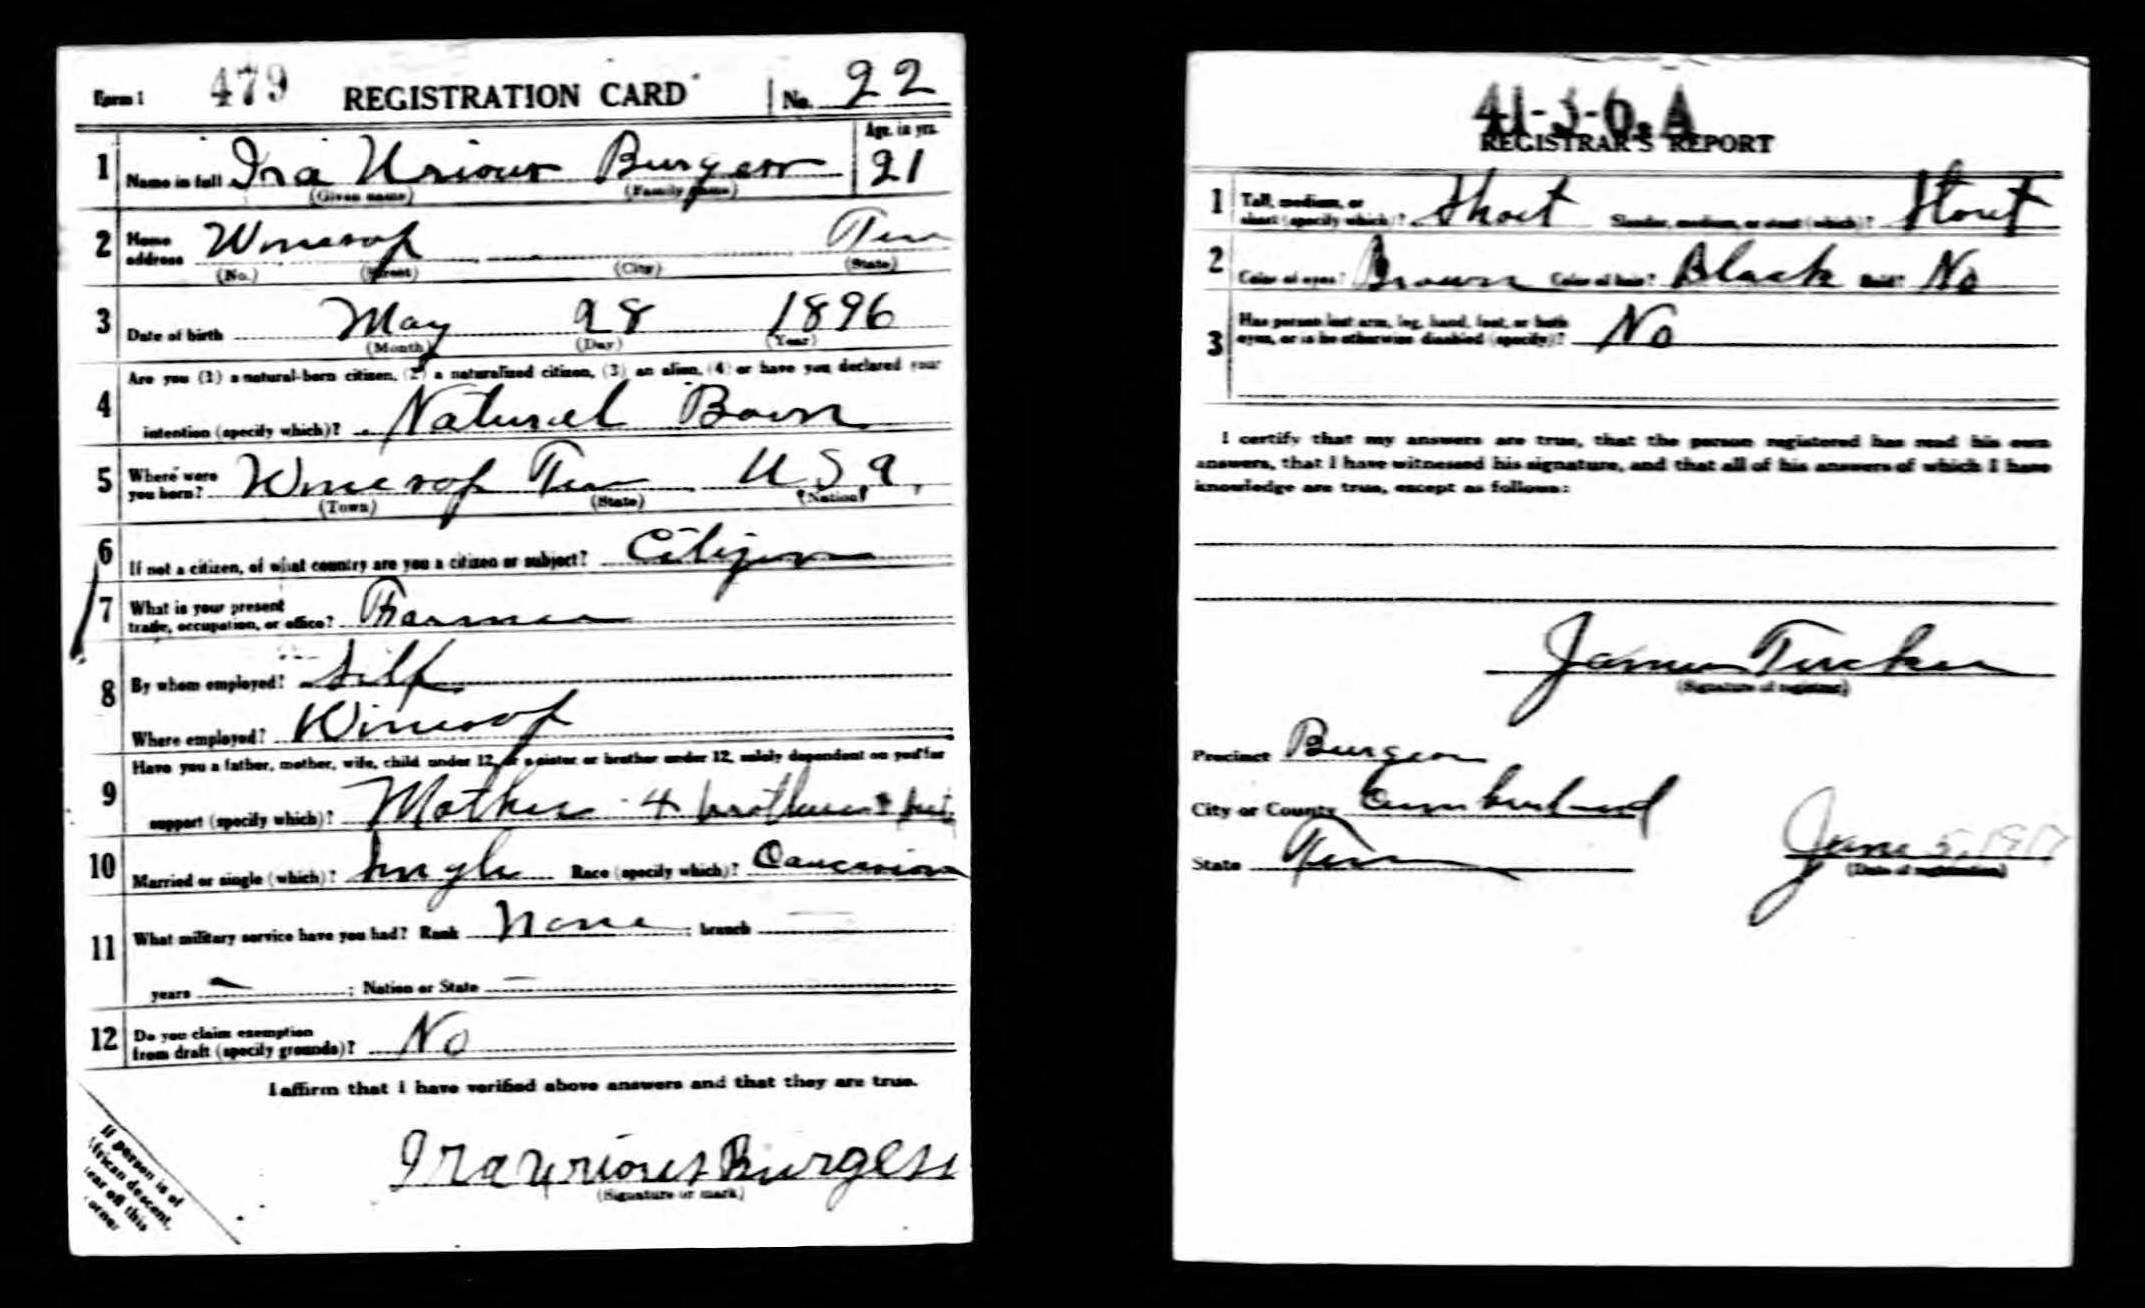 Form 1 479 REGISTRATION CARD No. 22
1 Name in full Ira Urious Burgess Age, in yrs. 21
(Given name) (Family name)
2 Home address Winesap Ten
(No.) (Street) (City) (State)
3 Date of birth May 28 1896
(Month) (Day) (Year)
Are you (1) a natural-born citizen, (2) a naturalized citizen, (3) an alien, (4) or have you declared your
4 intention (specify which)? Natural Born
5 Where were you born? Winesap Ten U.S.A.
(Town) (State) (Nation)
6 If not a citizen, of what country are you a citizen or subject? Citizen
7 What is your present
trade, occupation, or office? Farmer
8 By whom employed? Self
Where employed? Winesap
Have you a father, mother, wife, child under 12, or a sister or brother under 12, solely dependent on you for
9 support (specify which)? Mother 4 brothers &
10 Married or single (which)? Single Race (specify which)? Caucasion
11 What military service have you had? Rank None ; branch
years ; Nation or State
12 Do you claim exemption
from draft (specify grounds)? No
I affirm that I have verified above answers and that they are true.
Ira Urious Burgess
(Signature or mark)
If person is of
African descent,
tear off this
corner
41-3-6. A
REGISTRAR'S REPORT
1 Tall, medium, or
short (specify which)? Short Slender, medium, or stout (which)? Stout
2 Color of eyes? Brown Color of hair? Black Bald? No
3 Has person lost arm, leg, hand, foot, or both
eyes, or is he otherwise disabled (specify)? No
I certify that my answers are true, that the person registered has read his own
answers, that I have witnessed his signature, and that all of his answers of which I have
knowledge are true, except as follows:
James Tucker
(Signature of registrar)
Precinct Burgess
City or County Cumberland
State Ten June 5, 1917
(Date of registration)